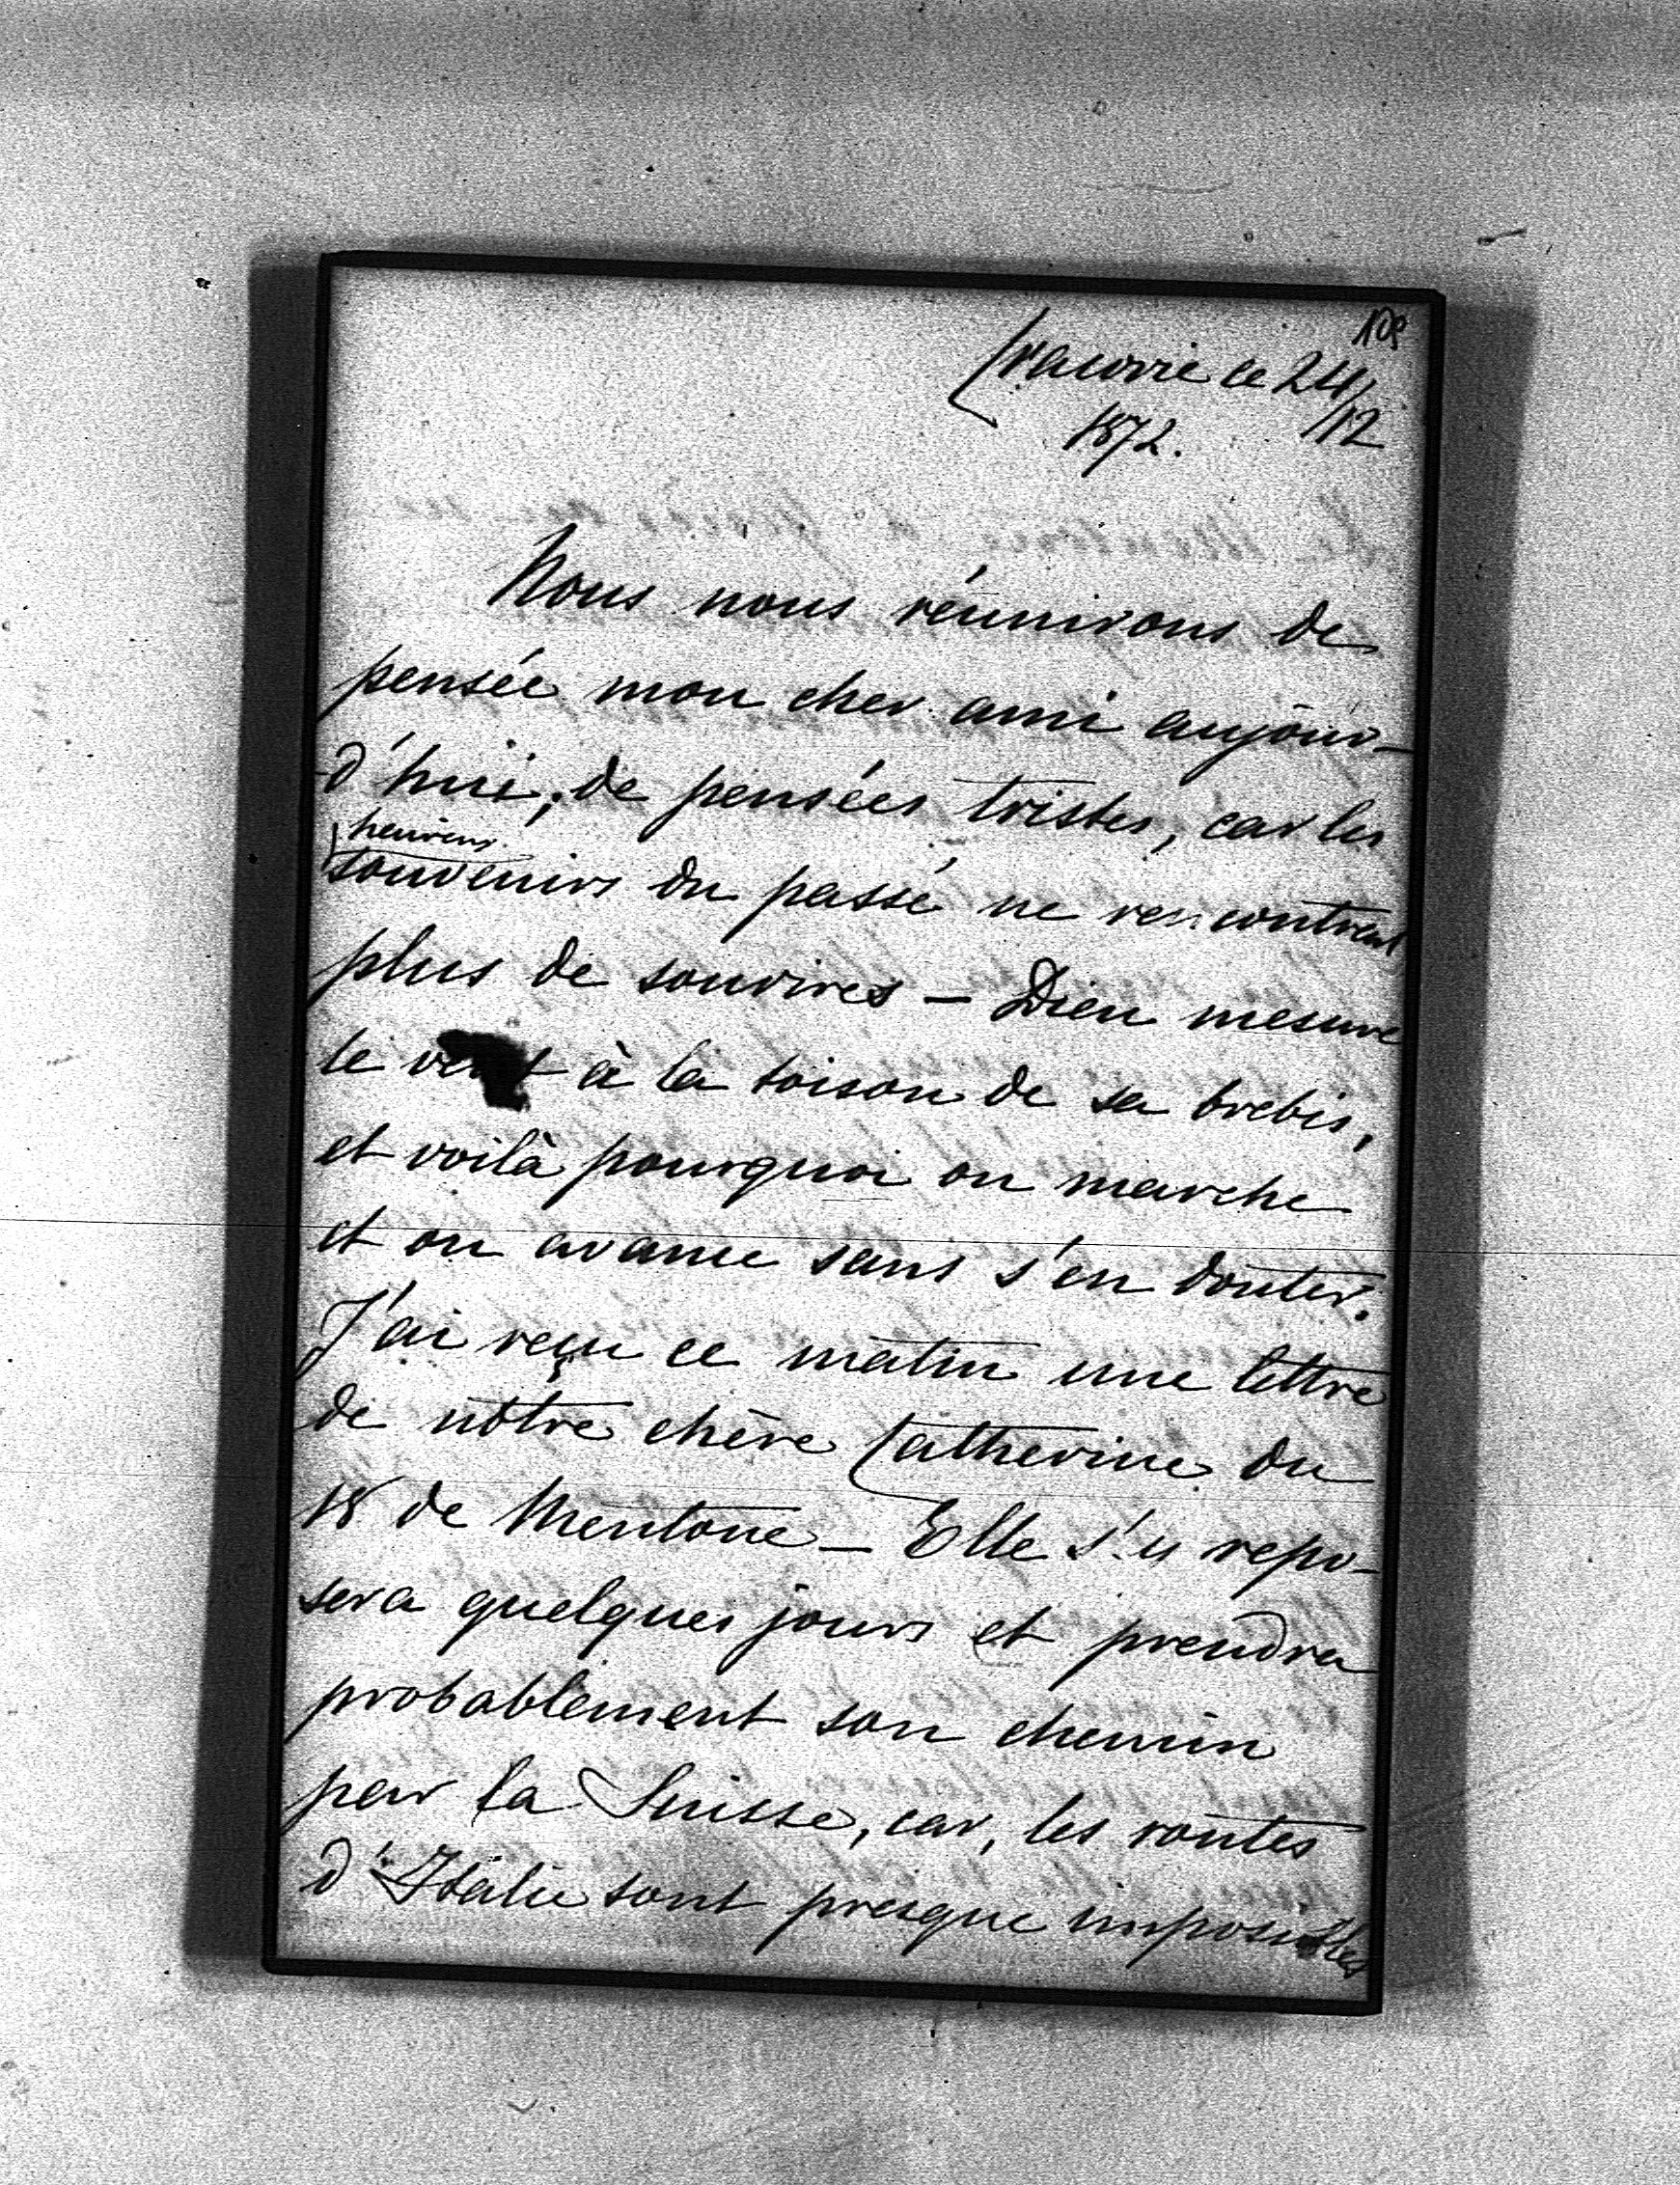 109
Cracovie ce 24/12
1872.
Nous nous réunirons de
pensée mon cher ami aujour-
d'hui, de pensées tristes, car les
heureux
souvenirs du passé ne rencontrent
plus de sourires — Dieu mesure
le vent à la toison de sa brebis,
et voilà pourquoi on marche
et on avance sans s'en douter.
J'ai reçu ce matin une lettre
de nôtre chère Catherine du
18 de Mentone — Elle s'y repo-
sera quelques jours et prendra
probablement son chemin
par la Suisse, car, les routes
d'Italie sont presque impossibles